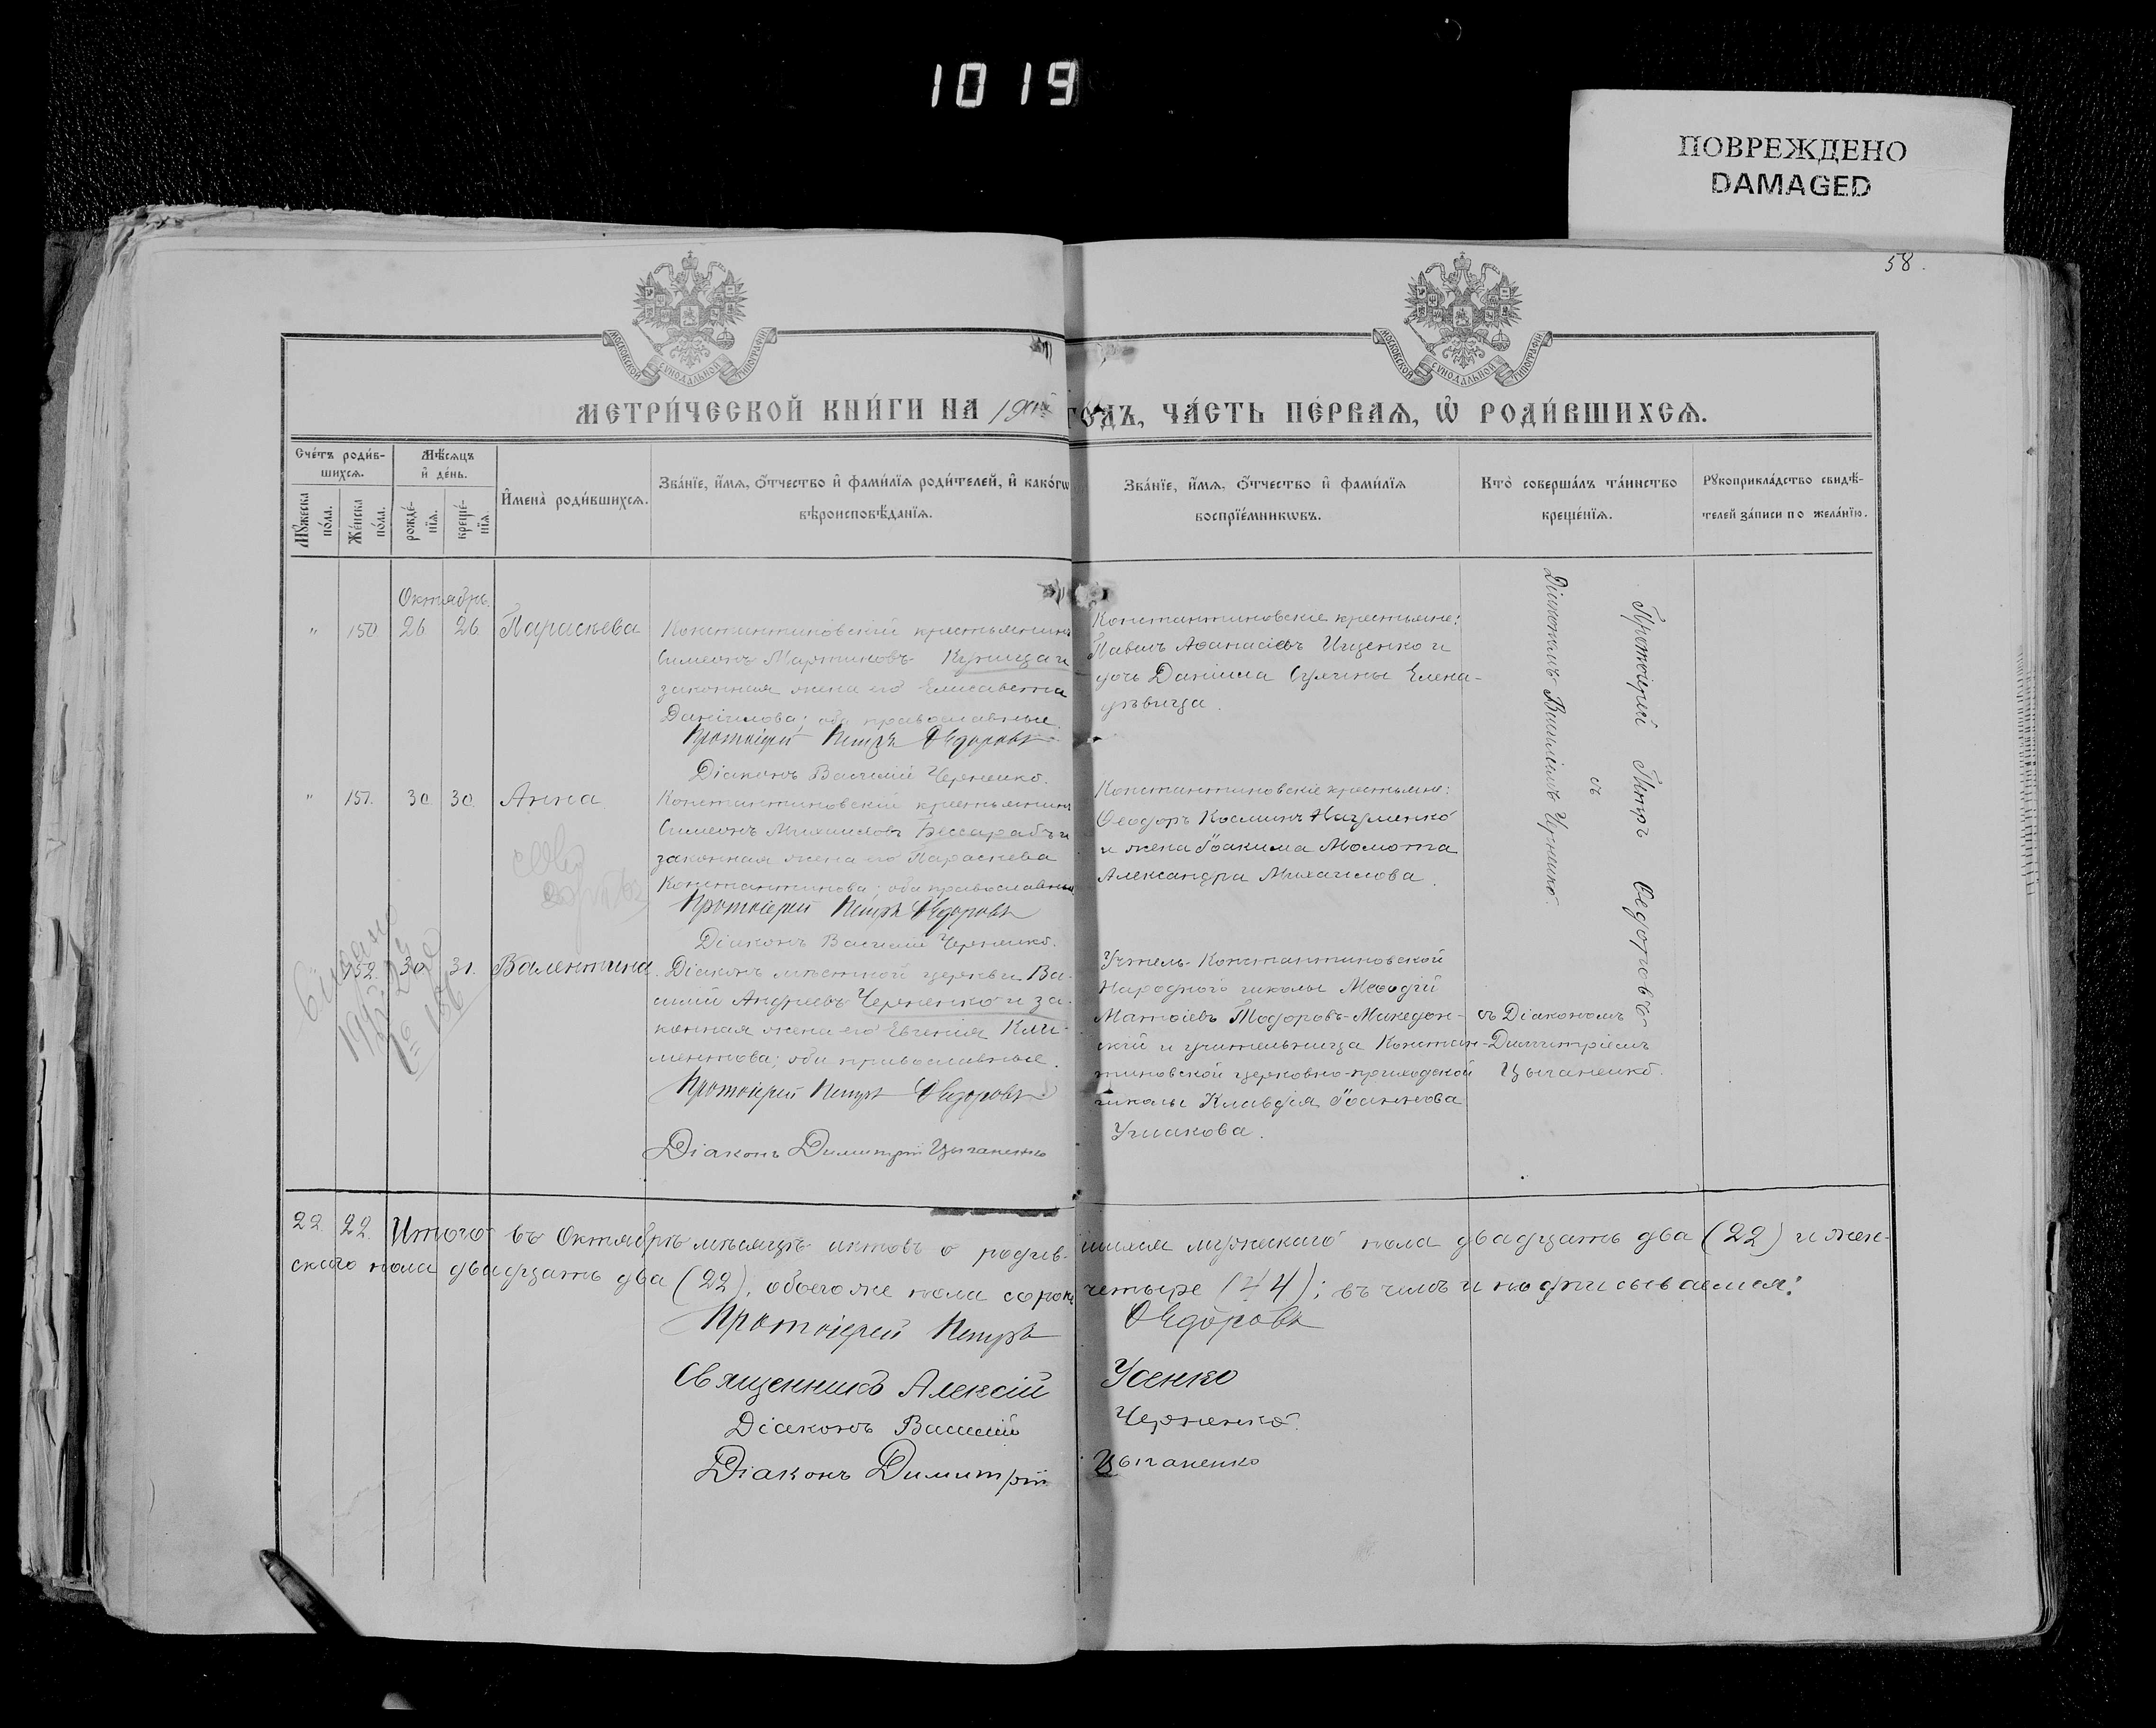 1019
ПОВРЕЖДЕНО
DAMAGED
58.
МОСКОВСКОЙ СѴНОДАЛЬНОЙ ТИПОГРАФІИ
МОСКОВСКОЙ СѴНОДАЛЬНОЙ ТИПОГРАФІИ
МЕТРИ́ЧЕСКОЙ КНИ́ГИ НА го́дъ, ЧА́СТЬ ПЕ́РВАЯ, Ѡ҆ РОДИ́ВШИХСЯ.
Сче́тъ роди́в-
шихся.
Мѣ́сяцъ
и҆ де́нь.
Мꙋ́жеска
по́ла.
Же́нска
по́ла.
рожде́-
нїя.
креще́-
нїя.
И҆мена̀ роди́вшихся.
Зва́нїе, и҆́мя, ѻ҆́тчество и҆ фами́лїя роди́телей, и҆ како́гѡ
вѣроисповѣ́данїя.
Зва́нїе, и҆́мя, ѻ҆́тчество и҆ фами́лїя
воспрїе́мникѡвъ.
Кто̀ соверша́лъ та́инство
креще́нїя.
Рꙋкоприкла́дство свидѣ́-
телей за́писи по жела́нїю.
Октябрь.
" 150 26 26 Параскева
Константиновскій крестьянинъ
Симеонъ Мартиновъ Куница и
законная жена его Елисавета
Даніилова; оба православные.
Протоіерей Петръ Ѳедоровъ
Діаконъ Василій Черненко.
Константиновскіе крестьяне:
Павелъ Аѳанасіевъ Ищенко и
дочь Даніила Сулимы Елена-
дѣвица.
" 151. 30 30 Анна
Константиновскій крестьянинъ
Симеонъ Михаиловъ Бессарабъ и
законная жена его Параскева
Константинова; оба православные
Протоіерей Петръ Ѳедоровъ
Діаконъ Василій Черненко.
Константиновскіе крестьяне:
Ѳеодоръ Косминъ Науменко
и жена Іоакима Момота
Александра Михаилова.
Протоіерей Петръ Ѳедоровъ
съ
Діакономъ Василіемъ Черненко.
152. 30 31. Валентина
Діаконъ мѣстной церкви Ва-
силій Андреевъ Черненко и за-
конная жена его Евгенія Кли-
ментова; оба православные.
Протоіерей Петръ Ѳедоровъ
Діаконъ Димитрій Цыганенко
Учтель Константиновской
Народной школы Меѳодій
Матѳіевъ Тодоровъ-Македон-
скій и учительница Констан-
тиновской церковно-приходской
школы Клавдія Іоаннова
Ушакова.
съ Діакономъ
Димитріемъ
Цыганенко.
22. 22. Итого въ Октябрѣ мѣсяцѣ актовъ о родив-шихся мужескаго пола двадцать два (22) и жен-
скаго пола двадцать два (22), обоего же пола сорокъ четыре (44); въ чемъ и подписываемся:
Протоіерей Петръ Ѳедоровъ
Священникъ Алексій Усенко
Діаконъ Василій Черненко.
Діаконъ Димитрій Цыганенко